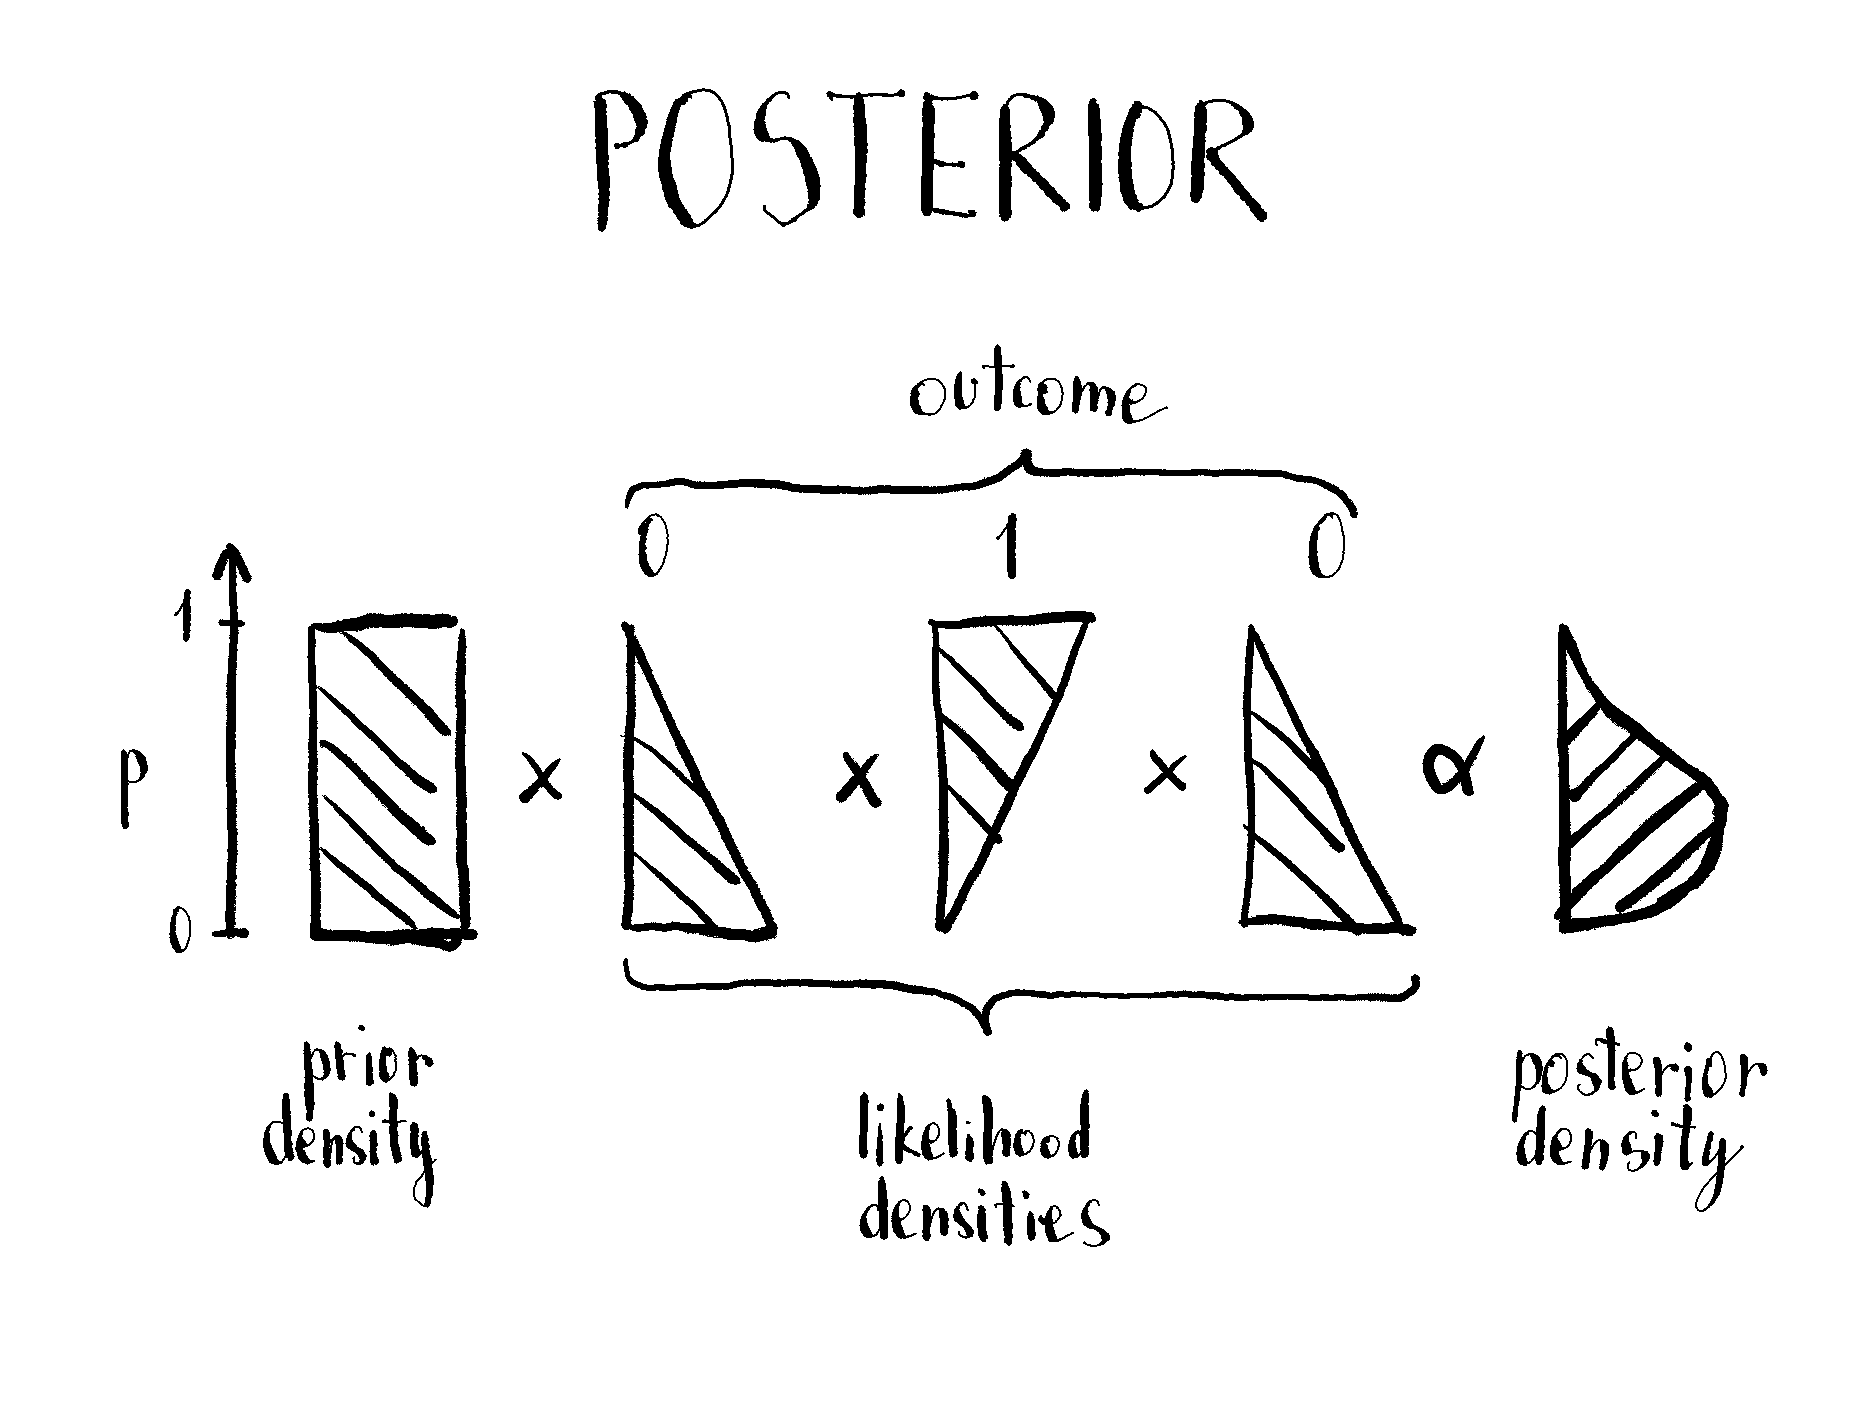 POSTERIOR
outcome
0 1 0
1
p × × × ∝
0
prior
density
likelihood
densities
posterior
density